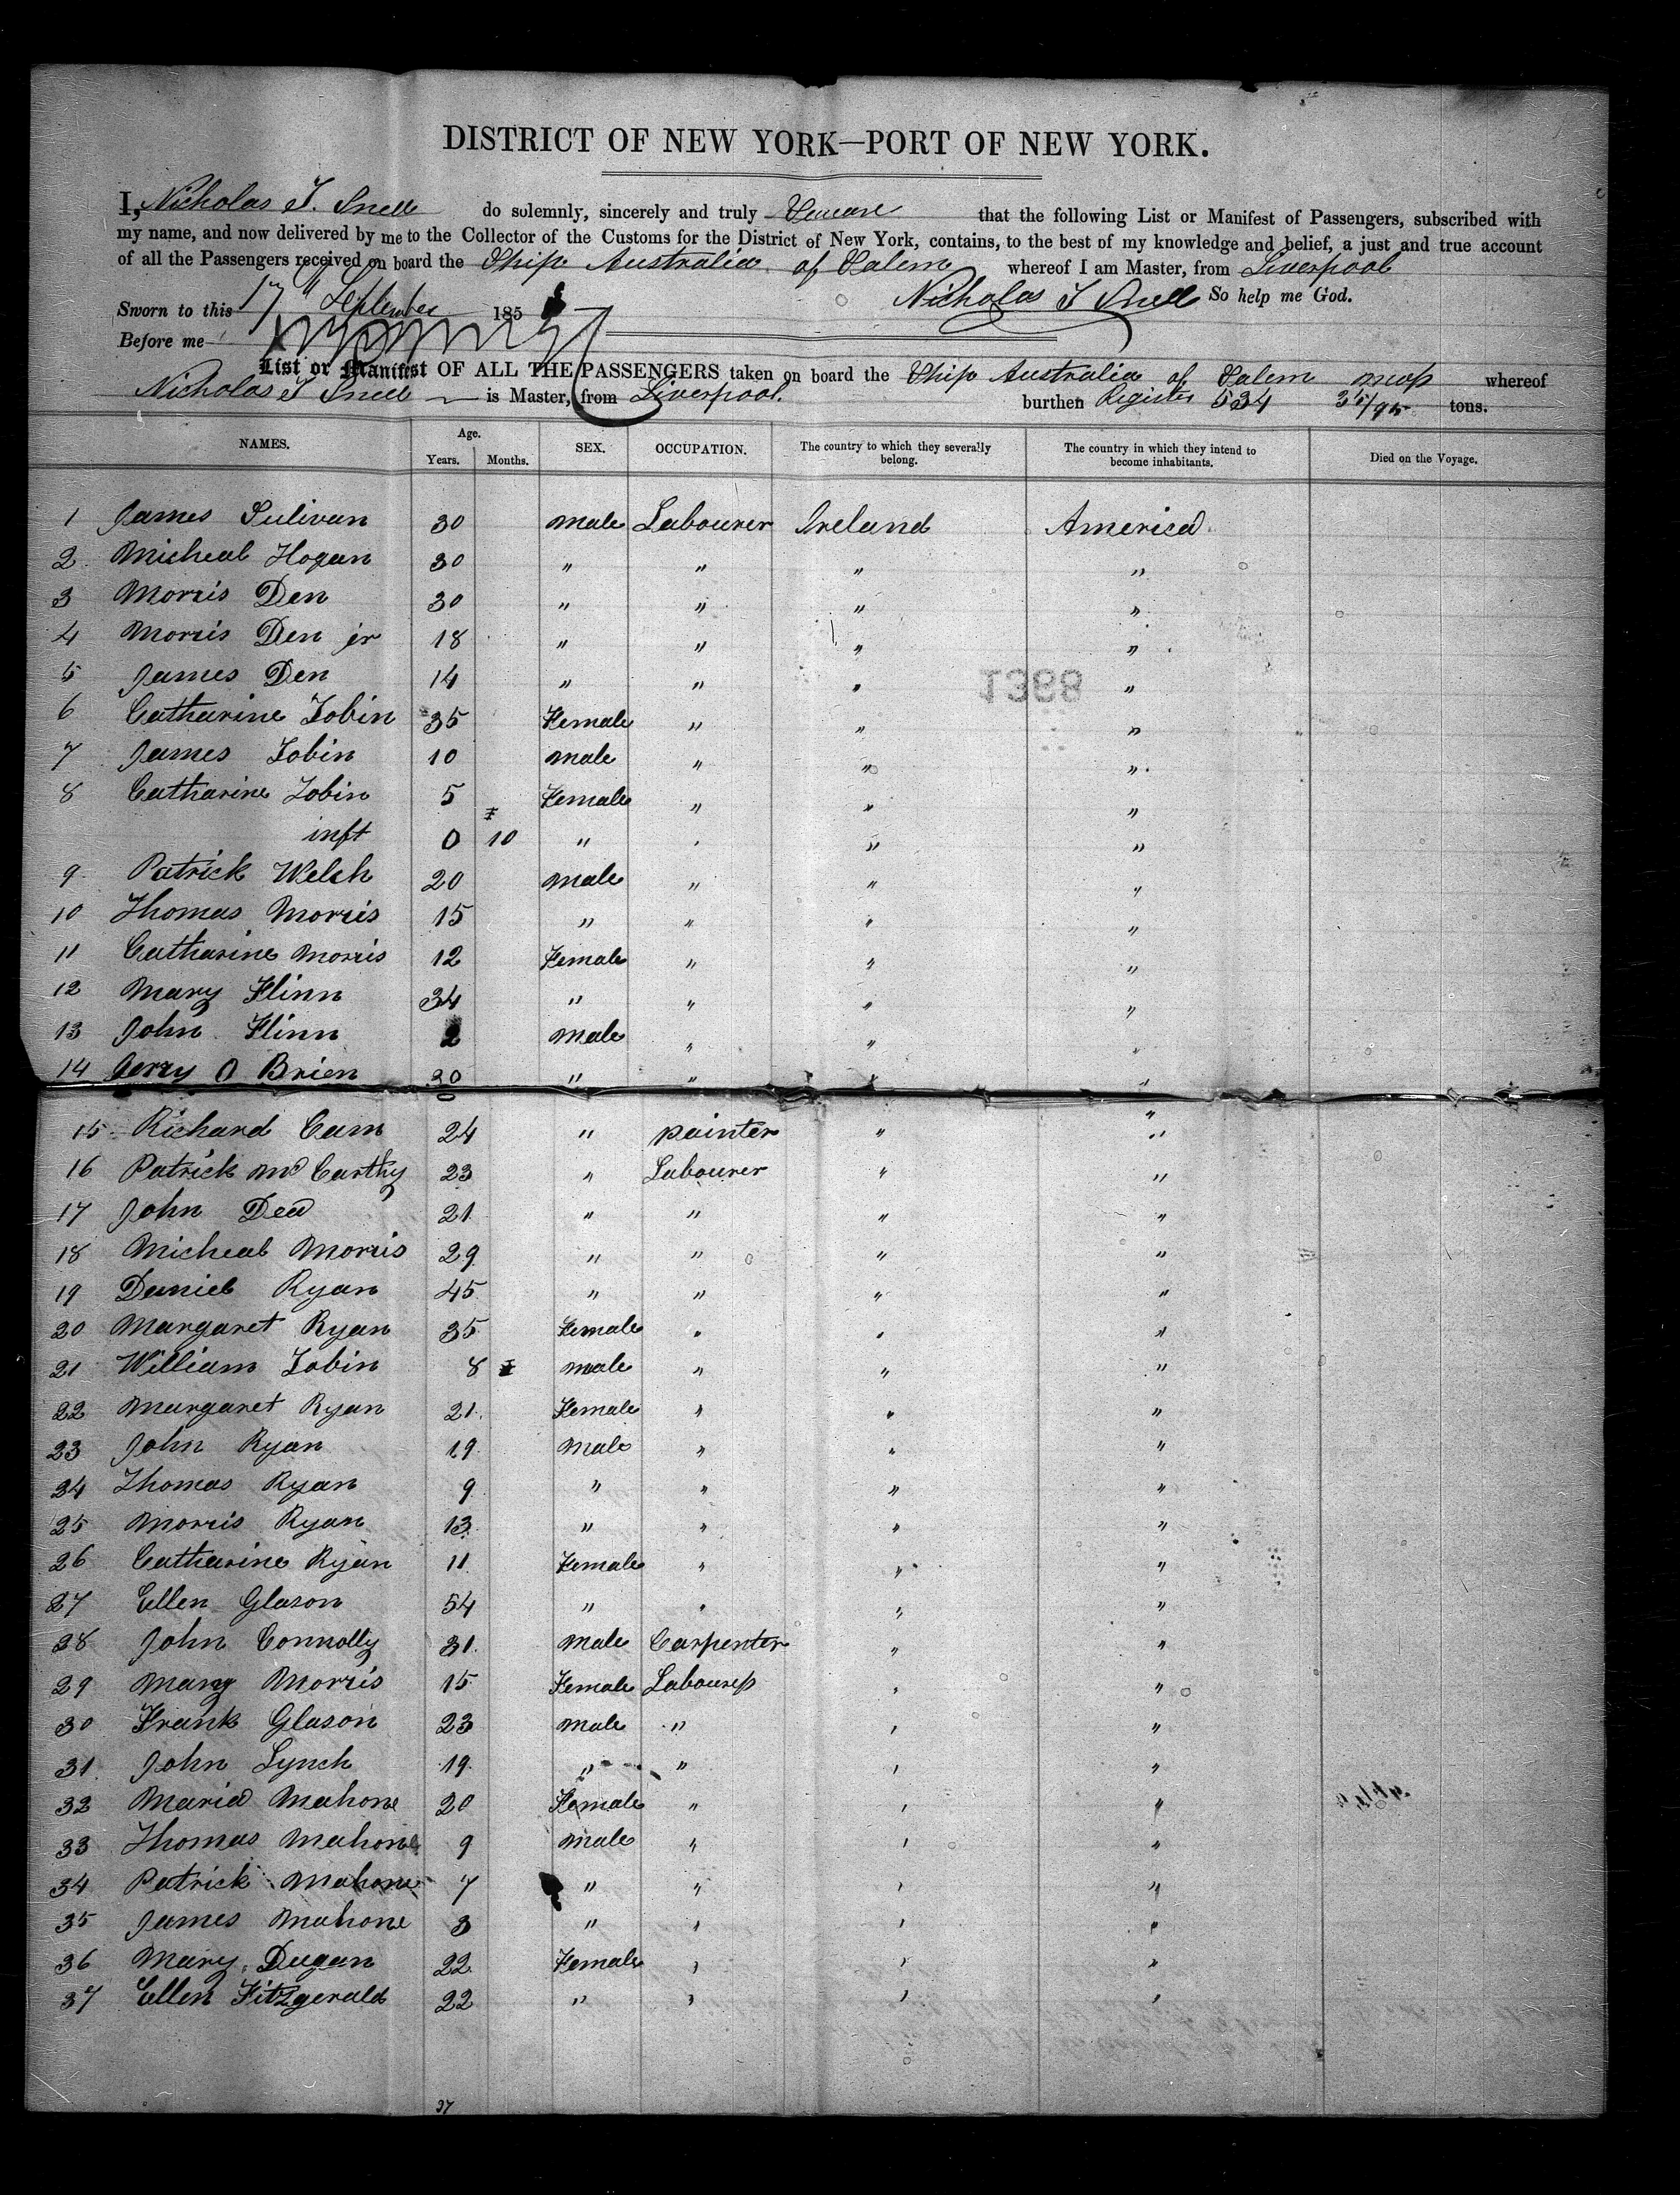 DISTRICT OF NEW YORK—PORT OF NEW YORK.
I, Nicholas T. Snell do solemnly, sincerely and truly Swear that the following List or Manifest of Passengers, subscribed with
my name, and now delivered by me to the Collector of the Customs for the District of New York, contains, to the best of my knowledge and belief, a just and true account
of all the Passengers received on board the Ship Australia of Salem whereof I am Master, from Liverpool
Sworn to this 17 " September 185 Nicholas T Snell So help me God.
Before me
List or Manifest OF ALL THE PASSENGERS taken on board the Ship Australia of Salem Mass whereof
Nicholas T Snell is Master, from Liverpool. burthen Register 534 35/95 tons.
NAMES. Age. Years. Months. SEX. OCCUPATION. The country to which they severally belong. The country in which they intend to become inhabitants. Died on the Voyage.
1 James Sulivan 30 male Labourer Ireland America
2 Micheal Hogan 30 " " " "
3 Morris Den 30 " " " "
4 Morris Den jr 18 " " " "
1368
5 James Den 14 " " " "
6 Catharine Tobin 35 Female " " "
7 James Tobin 10 male " " "
8 Catharine Tobin 5 Female " " "
inft 0 10 " " " "
9 Patrick Welsh 20 male " " "
10 Thomas Morris 15 " " " "
11 Catharine Morris 12 Female " " "
12 Mary Flinn 34 " " " "
13 John Flinn 2 male " " "
14 Jerry O Brien 30 " " " "
15 Richard Cam 24 " painter " "
16 Patrick Mc Carthy 23 " Labourer " "
17 John Dea 21 " " " "
18 Micheal Morris 29 " " " "
19 Daniel Ryan 45 " " " "
20 Margaret Ryan 35 Female " " "
21 William Tobin 8 male " " "
22 Margaret Ryan 21 Female " " "
23 John Ryan 19 Male " " "
24 Thomas Ryan 9 " " " "
25 Morris Ryan 13 " " " "
26 Catharine Ryan 11 Female " " "
27 Ellen Glason 54 " " " "
28 John Connolly 31 male Carpenter " "
29 Mary Morris 15 Female Labouress " "
30 Frank Glason 23 male " " "
31 John Lynch 19 " " " "
32 Maria Mahone 20 Female " " "
33 Thomas Mahone 9 male " " "
34 Patrick Mahone 7 " " " "
35 James Mahone 3 " " " "
36 Mary Dugan 22 Female " " "
37 Ellen Fitzgerald 22 " " " "
37